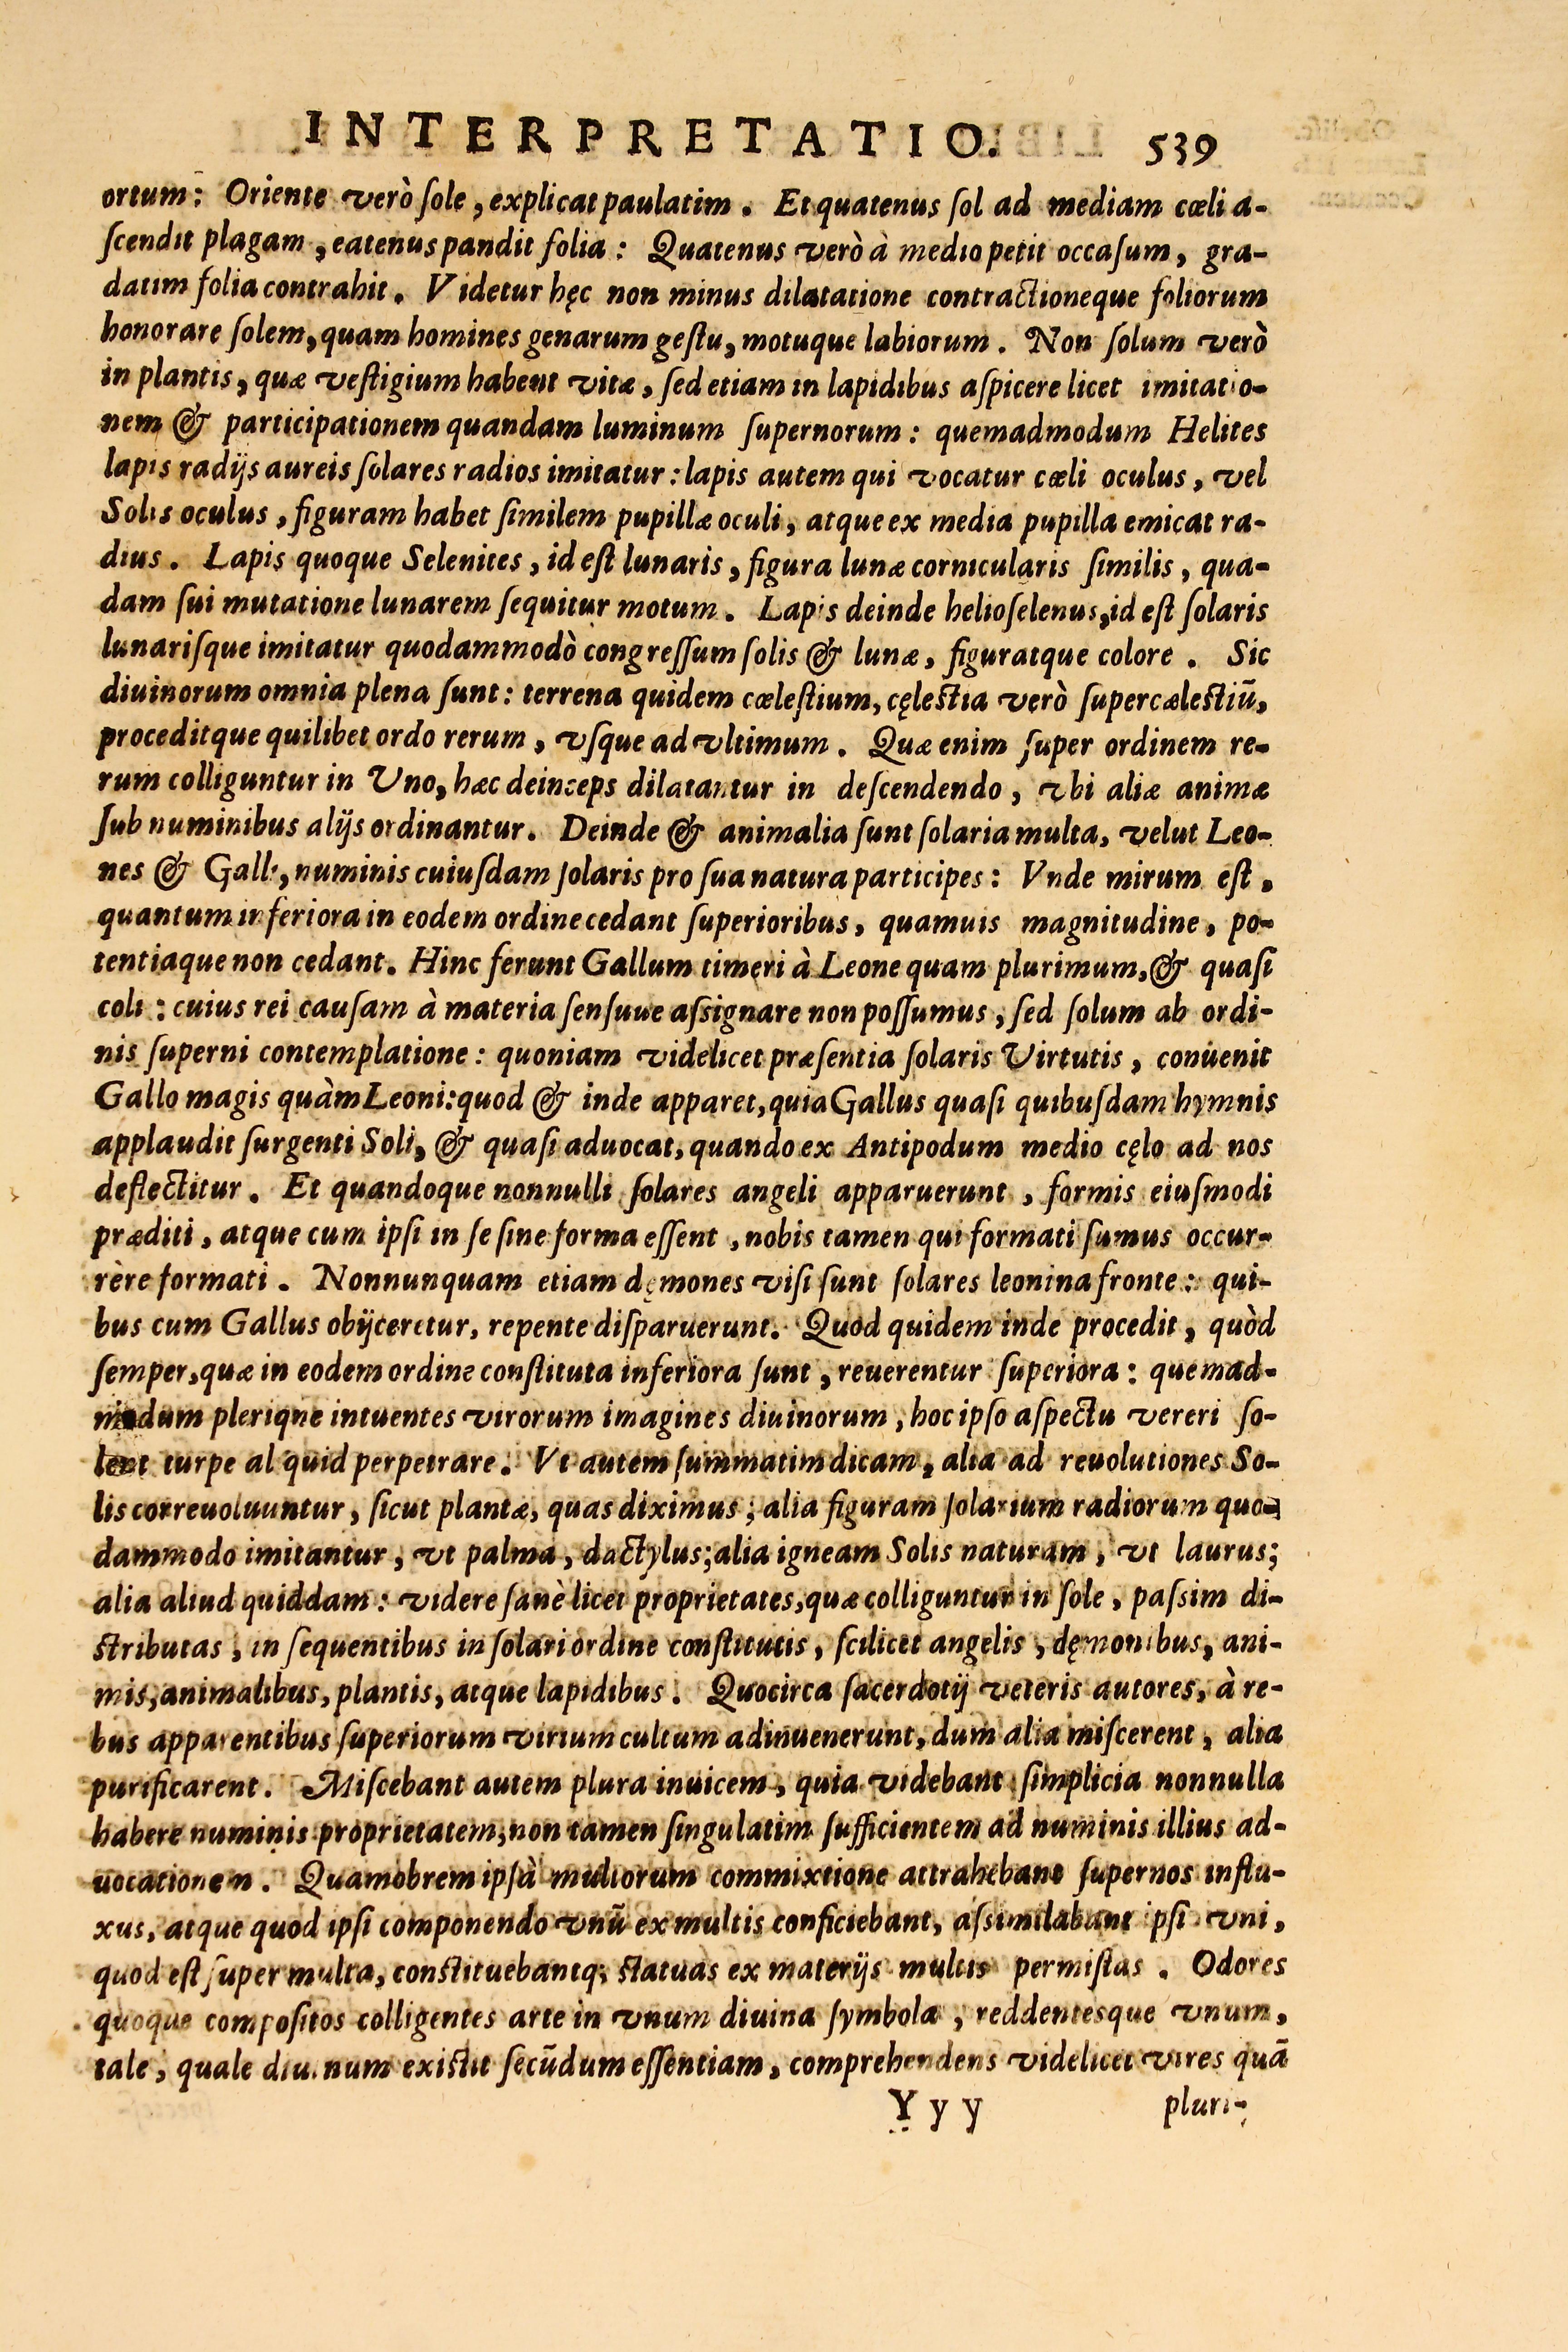 INTERPRETATIO. 539
ortum: Oriente verò ſole, explicat paulatim. Et quatenus ſol ad mediam cœli a-
ſcendit plagam, eatenus pandit folia: Quatenus verò à medio petit occaſum, gra-
datim folia contrahit. Videtur hęc non minus dilatatione contractioneque foliorum
honorare ſolem, quam homines genarum geſtu, motuque labiorum. Non ſolum verò
in plantis, quæ veſtigium habent vitæ, ſed etiam in lapidibus aſpicere licet imitatio-
nem & participationem quandam luminum ſupernorum: quemadmodum Helites
lapis radijs aureis ſolares radios imitatur: lapis autem qui vocatur cœli oculus, vel
Solis oculus, figuram habet ſimilem pupillæ oculi, atque ex media pupilla emicat ra-
dius. Lapis quoque Selenites, id eſt lunaris, figura lunæ cornicularis ſimilis, qua-
dam ſui mutatione lunarem ſequitur motum. Lapis deinde helioſelenus, id eſt ſolaris
lunariſque imitatur quodammodò congreſſum ſolis & lunæ, figuratque colore. Sic
diuinorum omnia plena ſunt: terrena quidem cœleſtium, cęleſtia verò ſupercæleſtiū,
proceditque quilibet ordo rerum, vſque ad vltimum. Quæ enim ſuper ordinem re-
rum colliguntur in Uno, hæc deinceps dilatantur in deſcendendo, vbi aliæ animæ
ſub numinibus alijs ordinantur. Deinde & animalia ſunt ſolaria multa, velut Leo-
nes & Galli, numinis cuiuſdam ſolaris pro ſua natura participes: Vnde mirum eſt,
quantum inferiora in eodem ordine cedant ſuperioribus, quamuis magnitudine, po-
tentiaque non cedant. Hinc ferunt Gallum timeri à Leone quam plurimum, & quaſi
coli: cuius rei cauſam à materia ſenſuue aſsignare non poſſumus, ſed ſolum ab ordi-
nis ſuperni contemplatione: quoniam videlicet præſentia ſolaris Virtutis, conuenit
Gallo magis quàm Leoni: quod & inde apparet, quia Gallus quaſi quibuſdam hymnis
applaudit ſurgenti Soli, & quaſi aduocat, quando ex Antipodum medio cęlo ad nos
deflectitur. Et quandoque nonnulli ſolares angeli apparuerunt, formis eiuſmodi
præditi, atque cum ipſi in ſe ſine forma eſſent, nobis tamen qui formati ſumus occur-
rère formati. Nonnunquam etiam dęmones viſi ſunt ſolares leonina fronte: qui-
bus cum Gallus obijceretur, repente diſparuerunt. Quod quidem inde procedit, quòd
ſemper, quæ in eodem ordine conſtituta inferiora ſunt, reuerentur ſuperiora: quemad-
modum plerique intuentes virorum imagines diuinorum, hoc ipſo aſpectu vereri ſo-
lent turpe aliquid perpetrare. Vt autem ſummatim dicam, alia ad reuolutiones So-
lis correuoluuntur, ſicut plantæ, quas diximus; alia figuram ſolarium radiorum quo-
dammodo imitantur, vt palma, dactylus; alia igneam Solis naturam, vt laurus;
alia aliud quiddam: videre ſanè licet proprietates, quæ colliguntur in ſole, paſsim di-
ſtributas, in ſequentibus in ſolari ordine conſtitutis, ſcilicet angelis, dęmonibus, ani-
mis, animalibus, plantis, atque lapidibus. Quocirca ſacerdotij veteris autores, à re-
bus apparentibus ſuperiorum virium cultum adinuenerunt, dum alia miſcerent, alia
purificarent. Miſcebant autem plura inuicem, quia videbant ſimplicia nonnulla
habere numinis proprietatem, non tamen ſingulatim ſufficientem ad numinis illius ad-
uocationem. Quamobrem ipſà multorum commixtione attrahebant ſupernos influ-
xus, atque quod ipſi componendo vnū ex multis conficiebant, aſsimilabant ipſi vni,
quod eſt ſuper multa, conſtituebantq; ſtatuas ex materijs multis permiſtas. Odores
quoque compoſitos colligentes arte in vnum diuina ſymbola, reddentesque vnum,
tale, quale diuinum exiſtit ſecūdum eſſentiam, comprehendens videlicet vires quā
Yyy pluri-